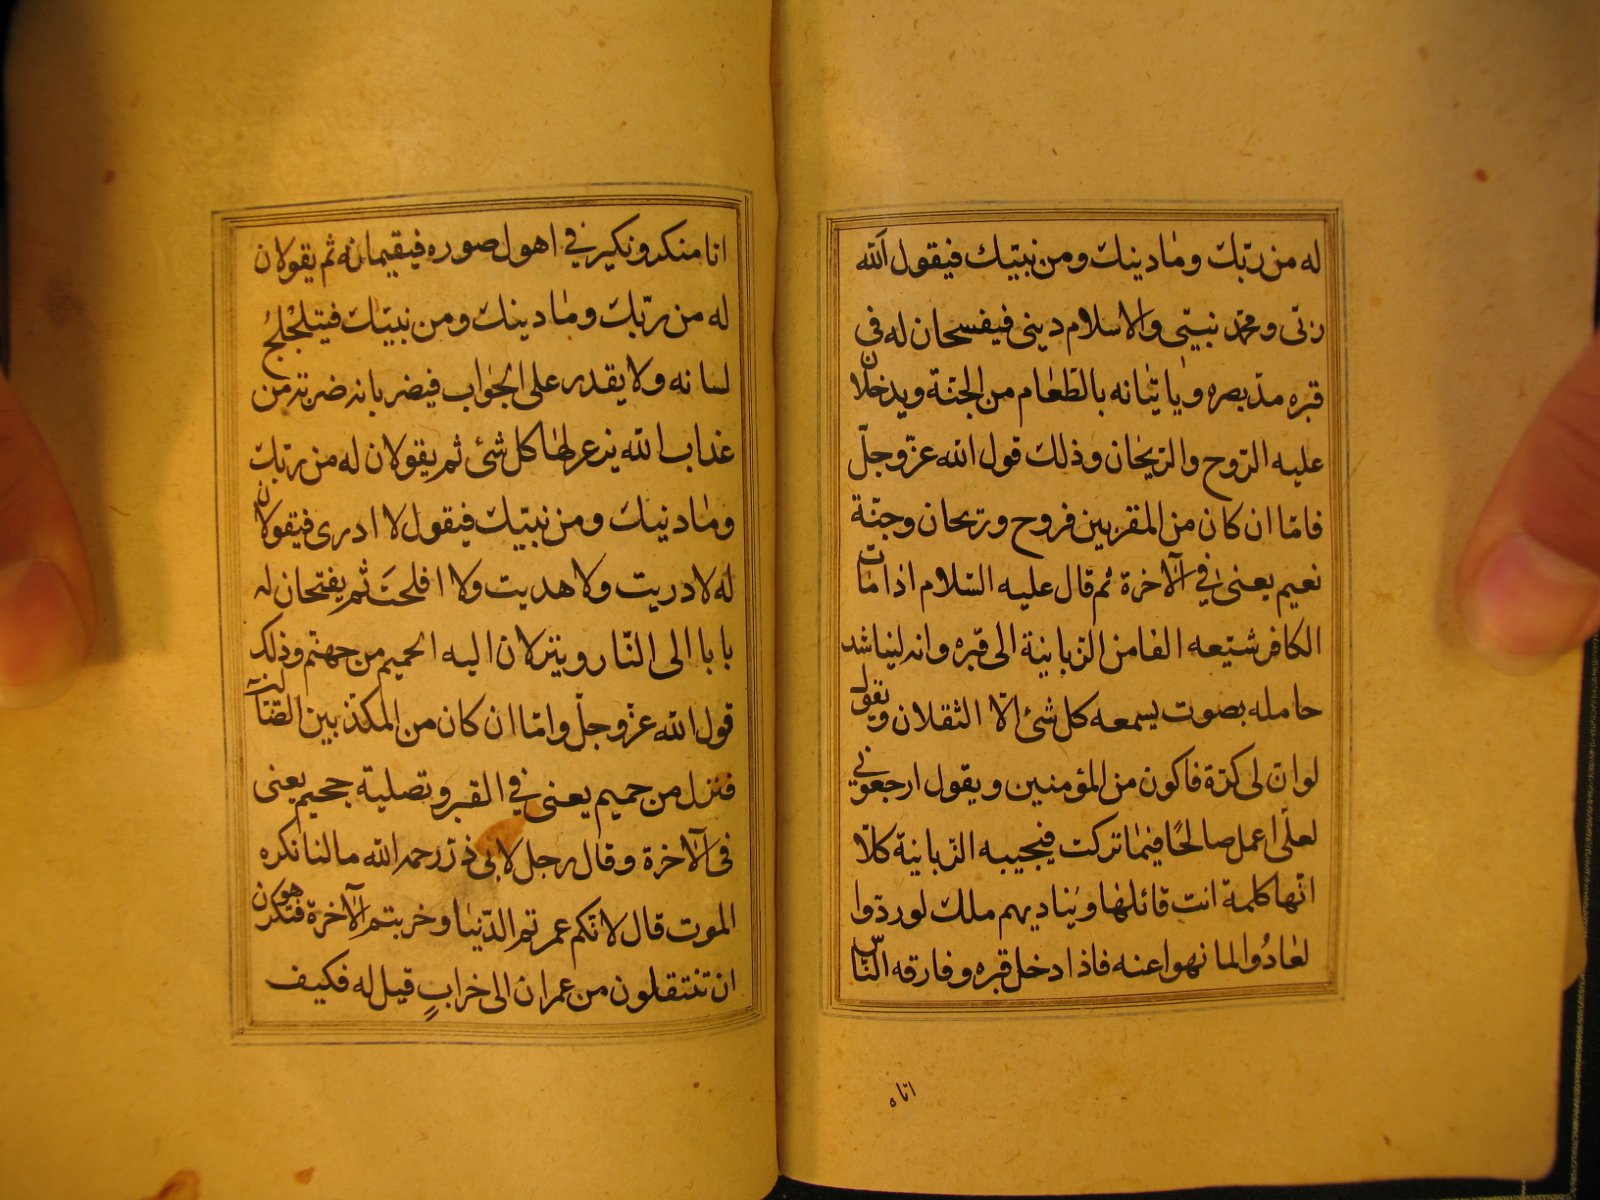 له من ربّك وما دينك ومن نبيّك فيقول اللّه
ربّى ومحمّد نبيّى والاسلام دينى فيفسحان له فى
قبره مدّ بصره وياتيانه بالطّعام من الجنّة ويدخلان
عليه الرّوح والرّيحان وذلك قول اللّه عزّ وجلّ
فامّا ان كان من المقرّبين فروح وريحان وجنّة
نعيم يعنى فى الآخرة ثم قال عليه السّلام اذا مات
الكافر شيّعه الفا من الزّبانية الى قبره وانه ليناشد
حامله بصوت يسمعه كل شئ الّا الثقلان ويقول
لو انّ لى كرّة فاكون من المؤمنين ويقول ارجعونى
لعلّى اعمل صالحًا فيما تركت فيجيبه الزّبانية كلّا
انّها كلمة انت قائلها ويناديهم ملك لو ردّوا
لعادُوا لما نهوا عنه فاذا دخل قبره وفارقه النّاس
اتاه
اتا منكر ونكير فى اهول صوره فيقيمانه ثم يقولان
له من ربّك وما دينك ومن نبيّك فيتلجْلجُ
لسانه ولا يقدر على الجواب فيضربانه ضربة من
عذاب اللّه يذعر لها كل شئ ثم يقولان له من ربّك
وما دينك ومن نبيّك فيقول لا ادرى فيقولان
له لا دريت ولا هديت ولا افلحتَ ثم يفتحان له
بابا الى النّار وينزلان اليه الحميم من جهنّم وذلك
قول اللّه عزّ وجلّ وامّا ان كان من المكذّبين الضّآلّين
فنزل من حميم يعنى فى القبر وتصلية جحيم يعنى
فى الآخرة وقال رجل لابى ذرّ رحمه اللّه ما لنا نكره
الموت قال لانّكم عمرتم الدّنيا وخربتم الآخرة فتكرهون
ان تنتقلون من عمران الى خرابٍ قيل له فكيف